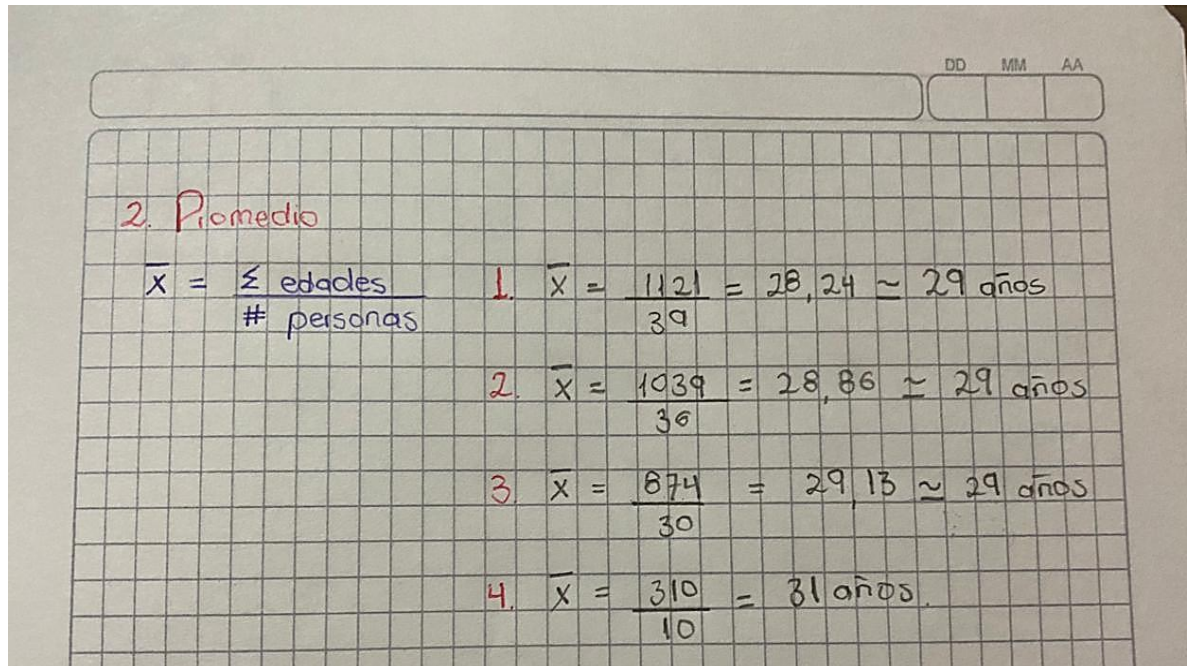 DD MM AA
2. Promedio
x̅ = Σ edades / # personas
1. x̅ = 1121 / 39 = 28,24 ≃ 29 años
2. x̅ = 1039 / 36 = 28,86 ≃ 29 años
3. x̅ = 874 / 30 = 29,13 ≃ 29 años
4. x̅ = 310 / 10 = 31 años.